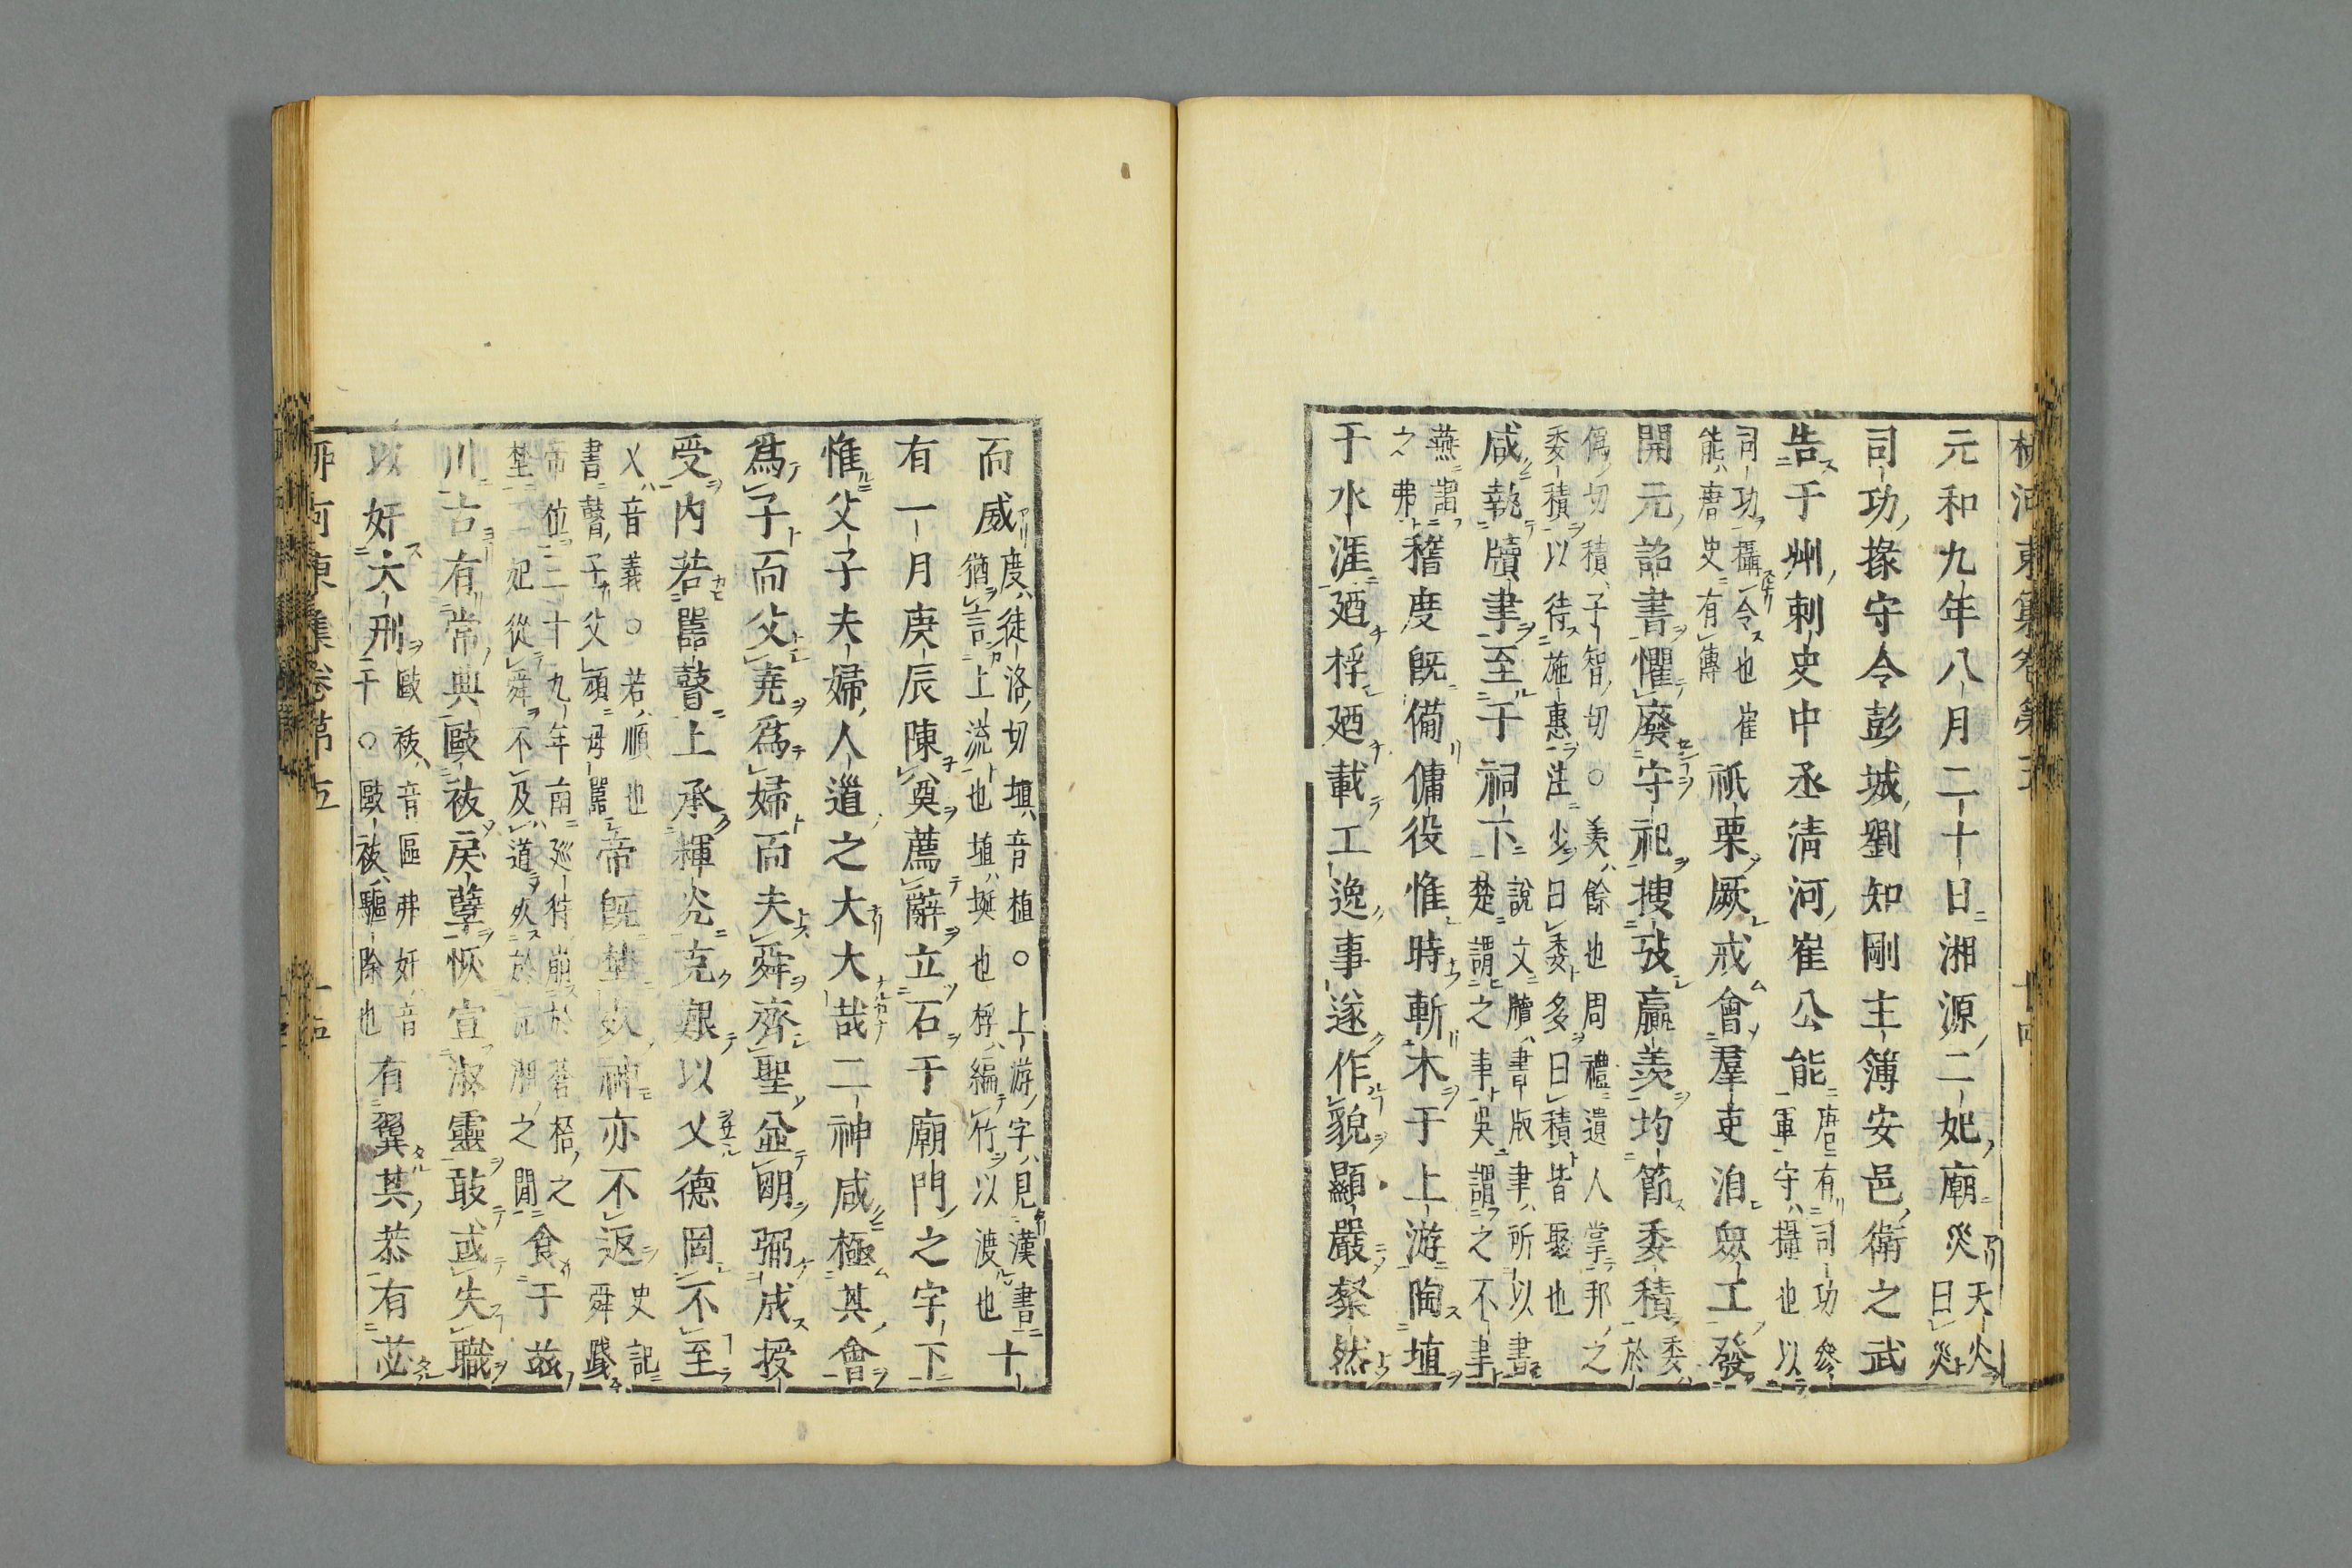 元和九年八月二十日湘源二妃廟災天火曰災
司功掾守令彭城劉知剛主簿安邑衛之武
告于州刺史中丞清河崔公能唐有司功參軍守攝也以
司功攝令也崔能唐史有傳祇栗厥戒會羣吏洎衆工發
開元詔書懼廢守祀搜攷贏羨均節委積委於
偽切積子智切○羨餘也周禮遺人掌邦之委積以待施惠注少曰委多曰積皆聚也
咸執牘聿至于祠下說文牘書版聿所以書楚謂之聿吳謂之不聿
燕謂之弗稽度既備傭役惟時斬木于上游陶埴
于水涯廼桴廼載工逸事遂作貌顯嚴粲然
而威度徒洛切埴音植○上游字見漢書猶言上流也埴埏也桴編竹以渡也十
有一月庚辰陳奠薦辭立石于廟門之宇下
惟父子夫婦人道之大大哉二神咸極其會
爲子而父堯爲婦而夫舜齊聖並明弼成授
受内若嚚瞽上承輝光克艱以乂德罔不至
乂音義○若順也書瞽子父頑母嚚帝既野死神亦不返史記舜踐
帝位三十九年南廵狩崩於蒼梧之野二妃從舜不及道死於沅湘之間食于兹
川古有常典敺祓戾孽恢宣淑靈敢或失職
以奸大刑敺祓音區弗奸音干○敺祓驅除也有翼其恭有苾
柳河東集卷第五
十五